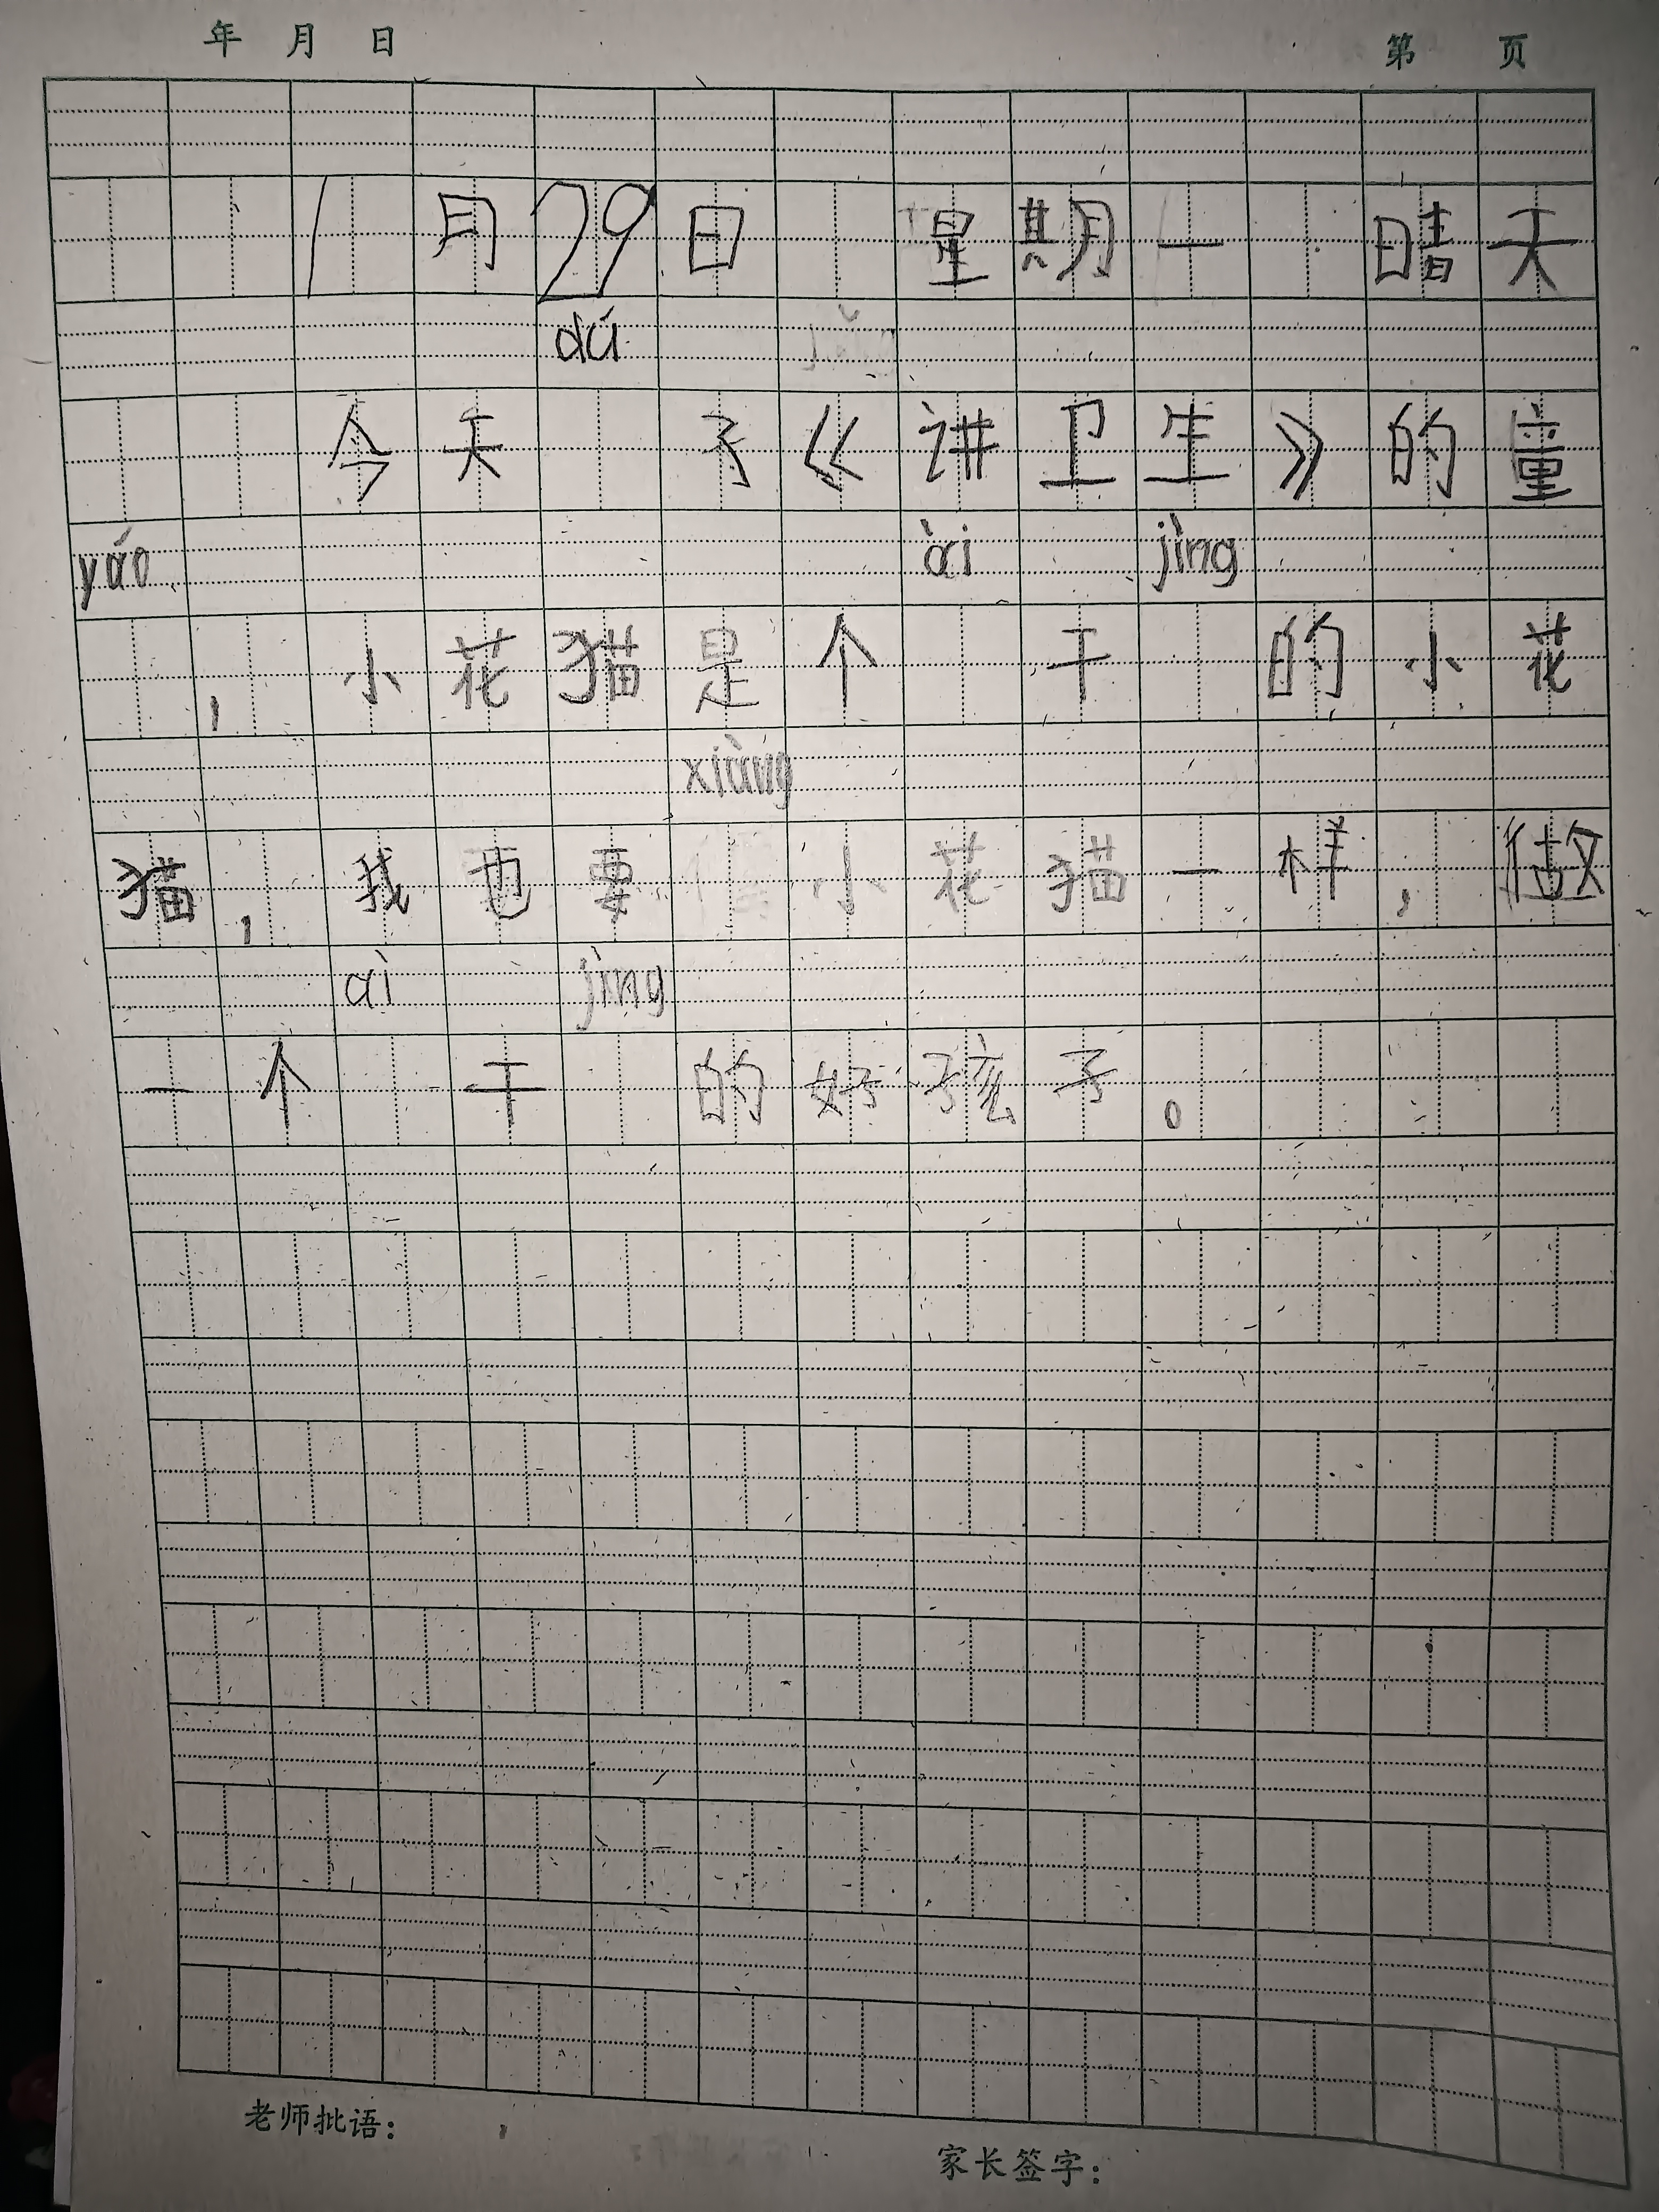 年 月 日 第 页
1月29日 星期一 晴天
dú
今天 了《讲卫生》的童
yáo ài jìng
，小花猫是个 干 的小花
xiàng
猫，我也要 小花猫一样，做
ài jìng
一个 干 的好孩子。
老师批语： 家长签字：